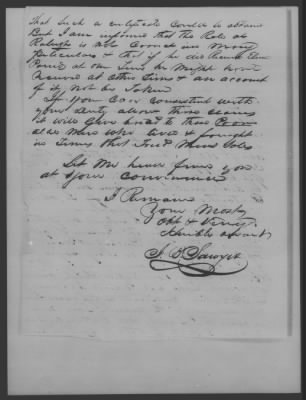 That such a certificate could be obtained
But I am informed that the Role at
Raleigh is not Correct in Many
Particulars & that if he did
at one time he Might have
Served at other times & an account
of it not be Taken
If you Can consistent with
your duty allow these claims
it will Give to these
olde Men who lived & fought
in Times that Tried Mens Soles
Let Me hear from you
at your convenience
I Remain
Your Most
Obt & Very
Humble Servt
Sawyer